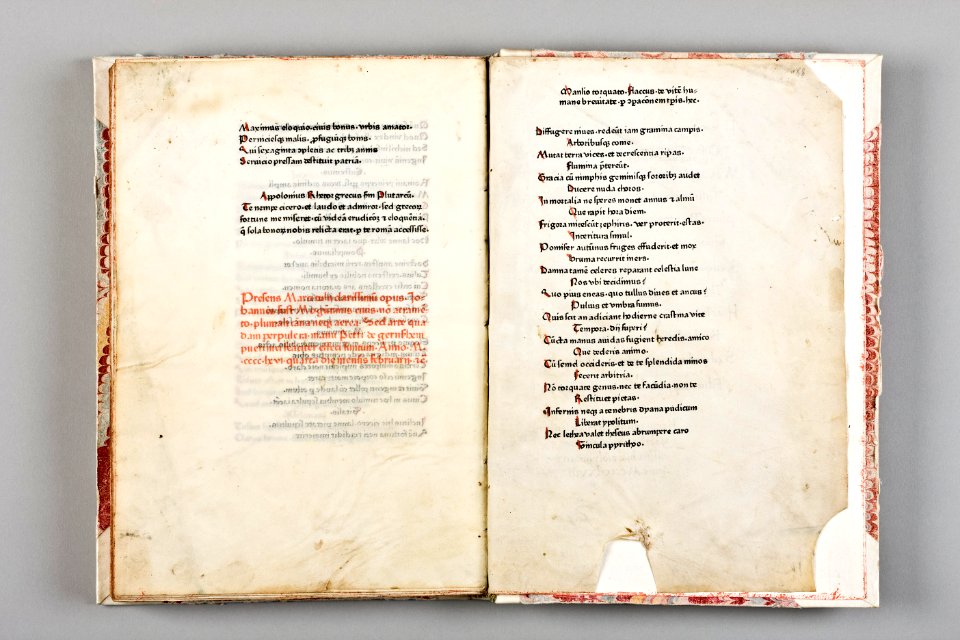 Maximus eloquio. ciuis bonus. vrbis amator.
Perniciesq; malis. pfugiūq; bonis.
Qui sexaginta cōplens ac tribꝫ annis
Seruicio pressam destituit patriā.
Appolonius Rhetor grecus fm Plutarcū.
Te nempe cicero. et laudo et admiror. sed grecoꝝ
fortune me miseret. cū videā erudicōꝫ ⁊ eloquētiā.
q̄ sola bonoꝝ nobis relicta erat. p te romā accessisse.
Presens Marci tulij clarissimū opus. Jo-
hannes fust Mogūtinus ciuis. nō atramē-
to. plumali cāna neqꝫ aerea. Sed arte qua-
dam perpulcra. manu Petri de gernsheym
pueri mei feliciter effeci finitum. Anno. M.
cccc.lxvi. quarta die mensis februarij. ⁊c̄.
Manlio torquato. flaccus. de vite hu-
mane breuitate. p ꝯpacōnem tꝑis. hec.
Diffugere niues. redeūt iam gramina campis.
Arboribusqꝫ come.
Mutat terra vices. et decrescentia ripas.
Flumina p̄tereūt.
Gracia cū nimphis geminisqꝫ sororibꝫ audet
Ducere nuda choros.
Inmortalia ne speres monet annus ⁊ almū
Que rapit hora diem.
Frigora mitescūt zephiris. ver proterit estas.
Interitura simul.
Pomifer autūnus fruges effuderit et mox
Bruma recurrit iners.
Damna tamē celeres reparant celestia lune
Nos vbi decidimus?
Quo pius eneas. quo tullus diues et ancus?
Puluis et vmbra sumus.
Quis scit an adiciant hodierne crastina vite
Tempora. dij superi?
Cūcta manus auidas fugient heredis. amico
Que dederis animo.
Cū semel occideris. et de te splendida minos
Fecerit arbitria.
Nō torquate genus. nec te facūdia. non te
Restituet pietas.
Infernis neqꝫ a tenebris dyana pudicum
Liberat ypolitum.
Nec lethea valet theseus abrumpere caro
Vincula pyrithoo.